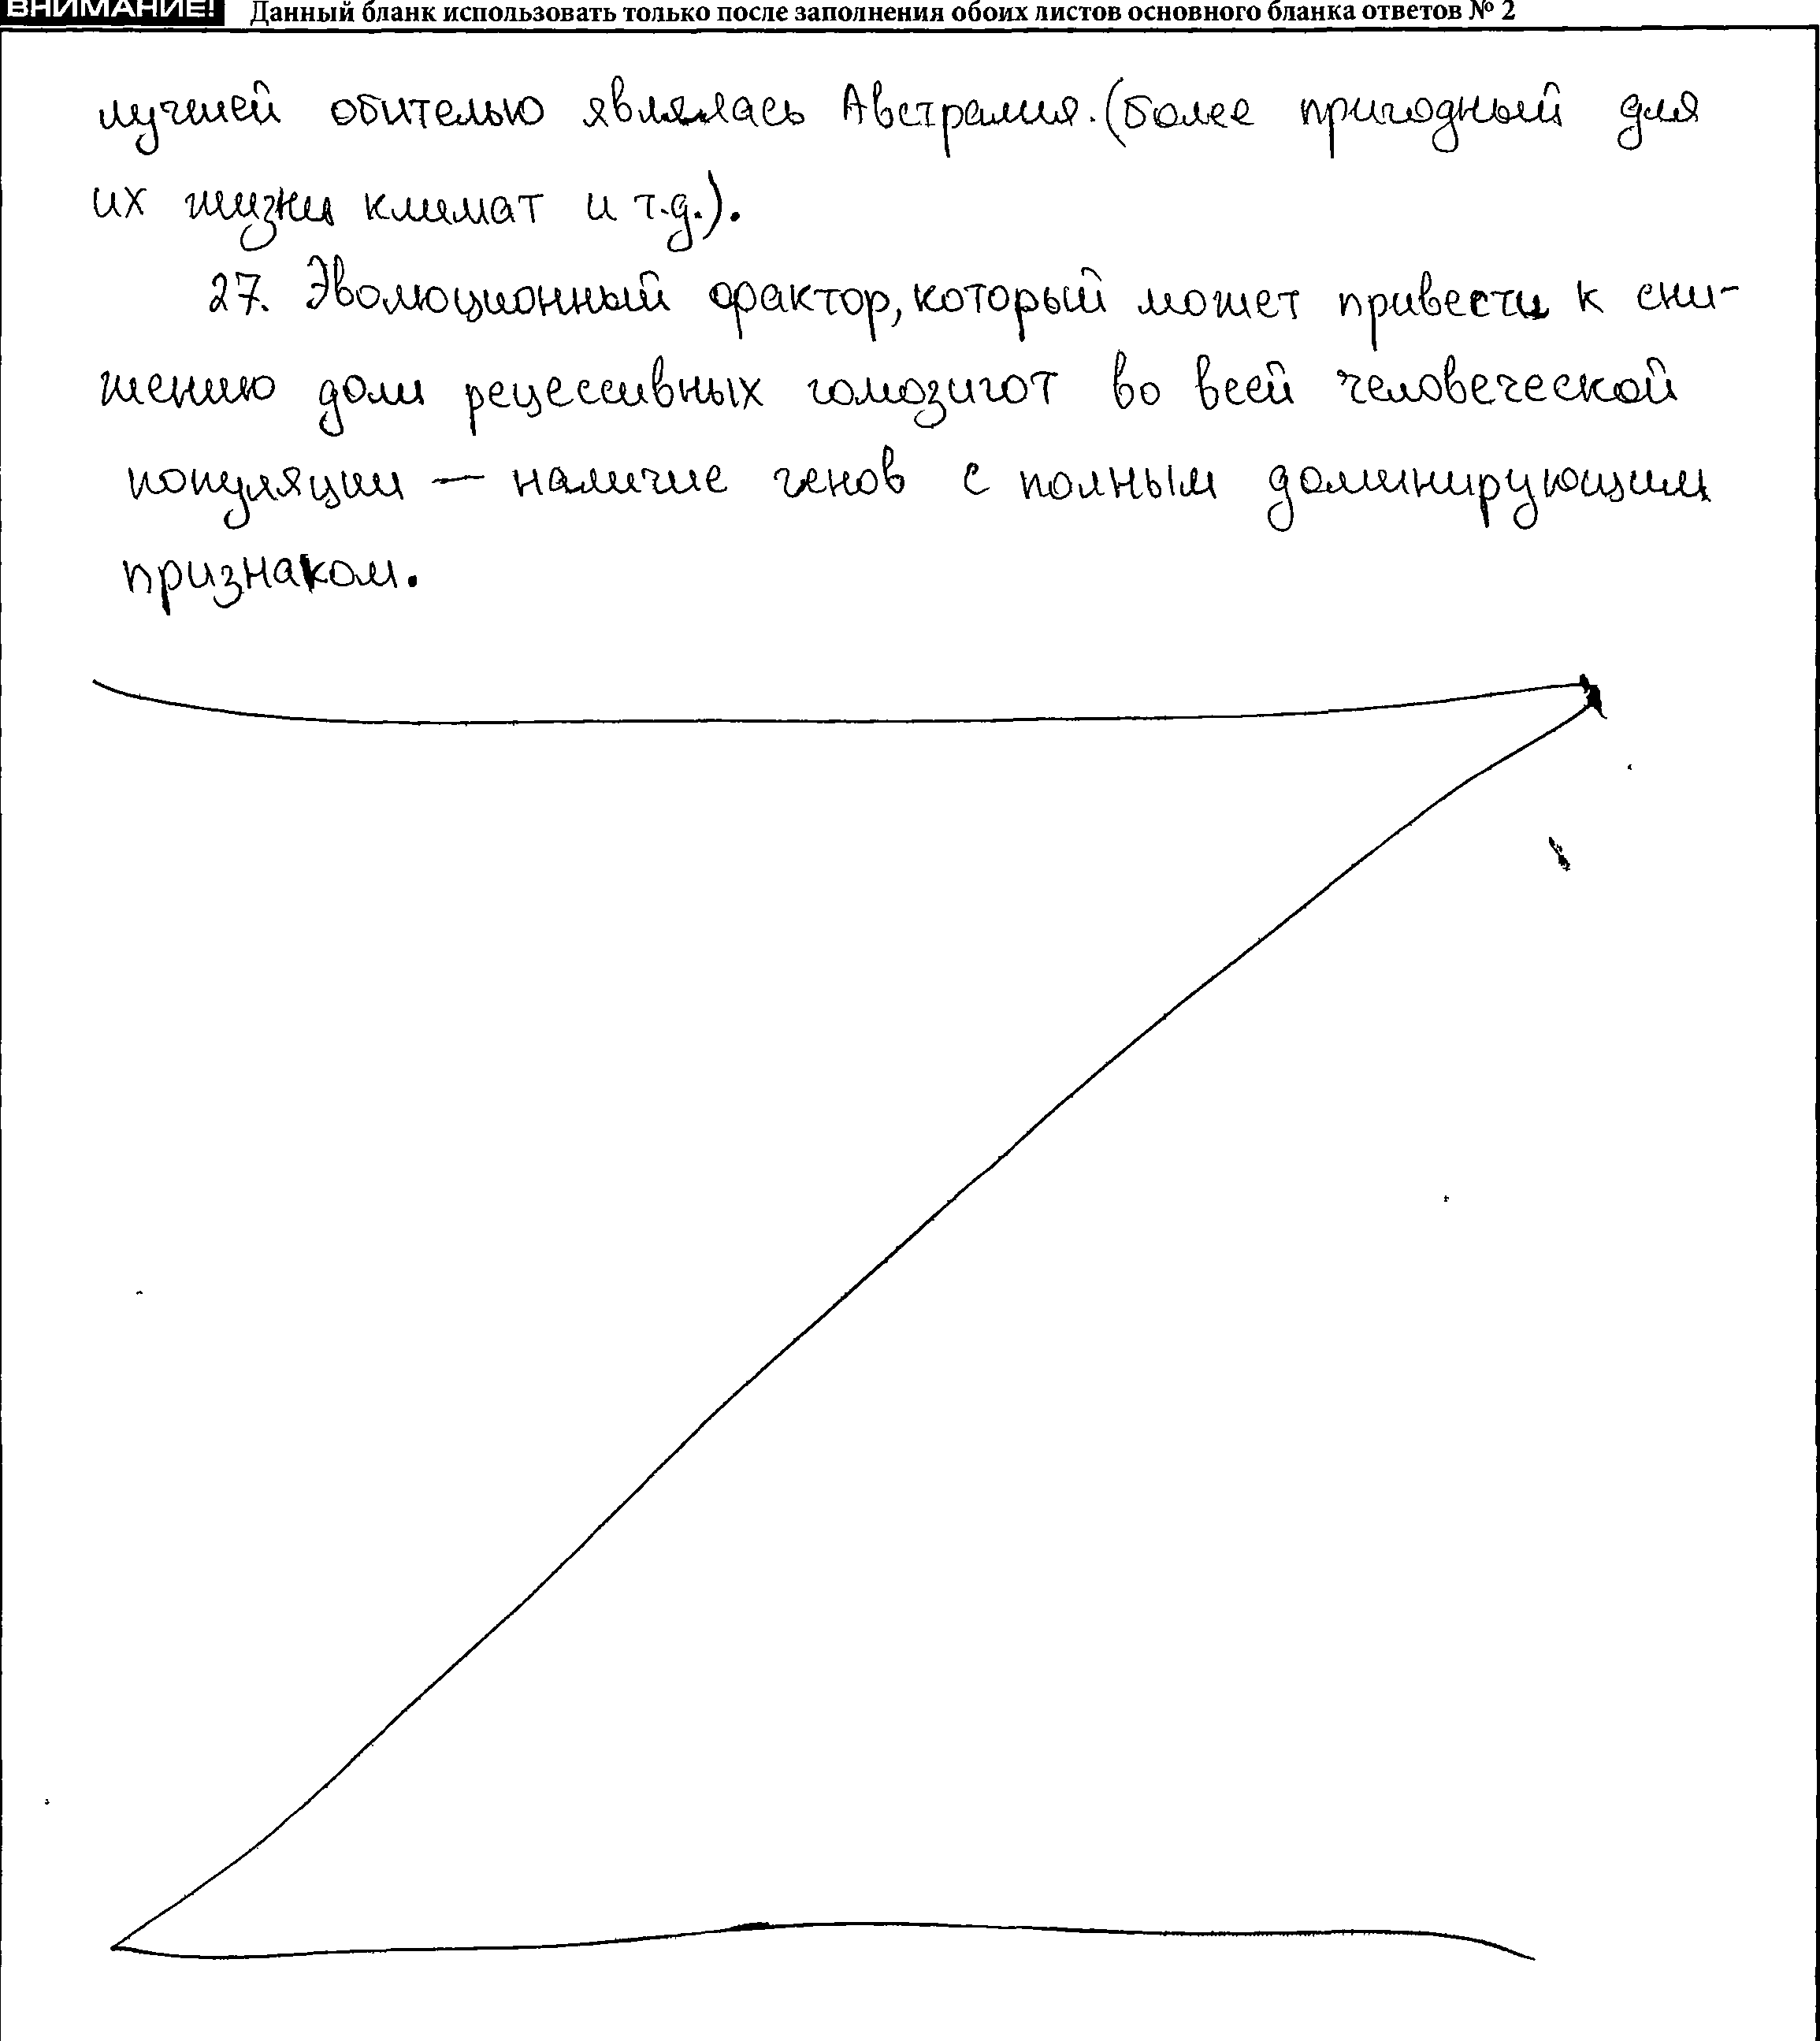 ВНИМАНИЕ! Данный бланк использовать только после заполнения обоих листов основного бланка ответов № 2
лучшей обителью являлась Австралия. (более пригодный для
их жизни климат и т.д.).
27. Эволюционный фактор, который может привести к сни-
жению доли рецессивных гомозигот во всей человеческой
популяции — наличие генов с полным доминирующим
признаком.